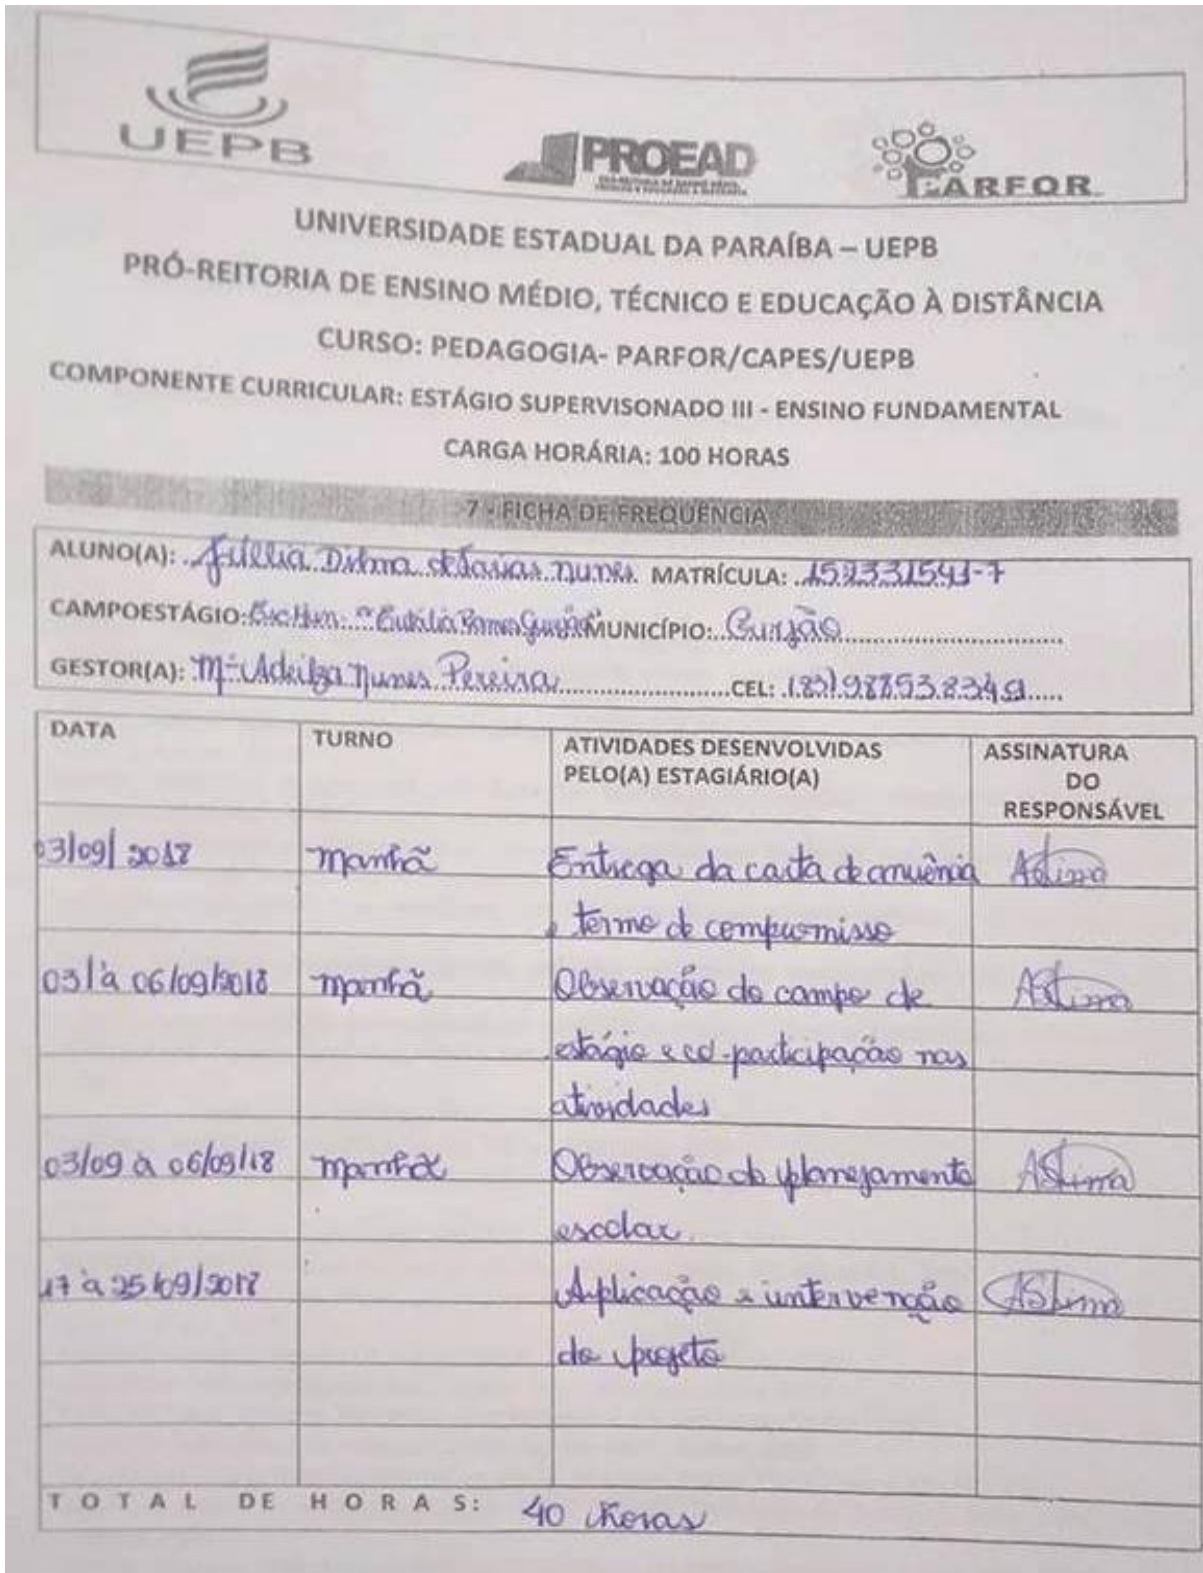 UEPB
PROEAD
PARFOR
UNIVERSIDADE ESTADUAL DA PARAÍBA – UEPB
PRÓ-REITORIA DE ENSINO MÉDIO, TÉCNICO E EDUCAÇÃO À DISTÂNCIA
CURSO: PEDAGOGIA- PARFOR/CAPES/UEPB
COMPONENTE CURRICULAR: ESTÁGIO SUPERVISONADO III - ENSINO FUNDAMENTAL
CARGA HORÁRIA: 100 HORAS
7 - FICHA DE FREQUÊNCIA
ALUNO(A): Dilma Nunes MATRÍCULA:
CAMPOESTÁGIO: MUNICÍPIO: Gurjão
GESTOR(A): Mª Adeilza Nunes Pereira CEL:
DATA TURNO ATIVIDADES DESENVOLVIDAS PELO(A) ESTAGIÁRIO(A) ASSINATURA DO RESPONSÁVEL
03/09/2018 manhã Entrega da carta de anuência ASLima
e termo de compromisso
03/à 06/09/2018 manhã Observação do campo de ASLima
estágio e co-participação nas
atividades
03/09 à 06/09/18 manhã Observação do planejamento ASLima
escolar.
17 à 25/09/2018 Aplicação e intervenção ASLima
do projeto
TOTAL DE HORAS: 40 Horas